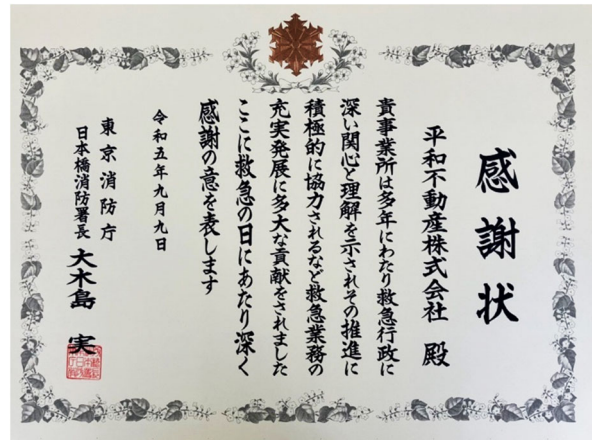 感謝状
平和不動産株式会社 殿
貴事業所は多年にわたり救急行政に
深い関心と理解を示されその推進に
積極的に協力されるなど救急業務の
充実発展に多大な貢献をされました
ここに救急の日にあたり深く
感謝の意を表します
令和五年九月九日
東京消防庁
日本橋消防署長 大木島 実